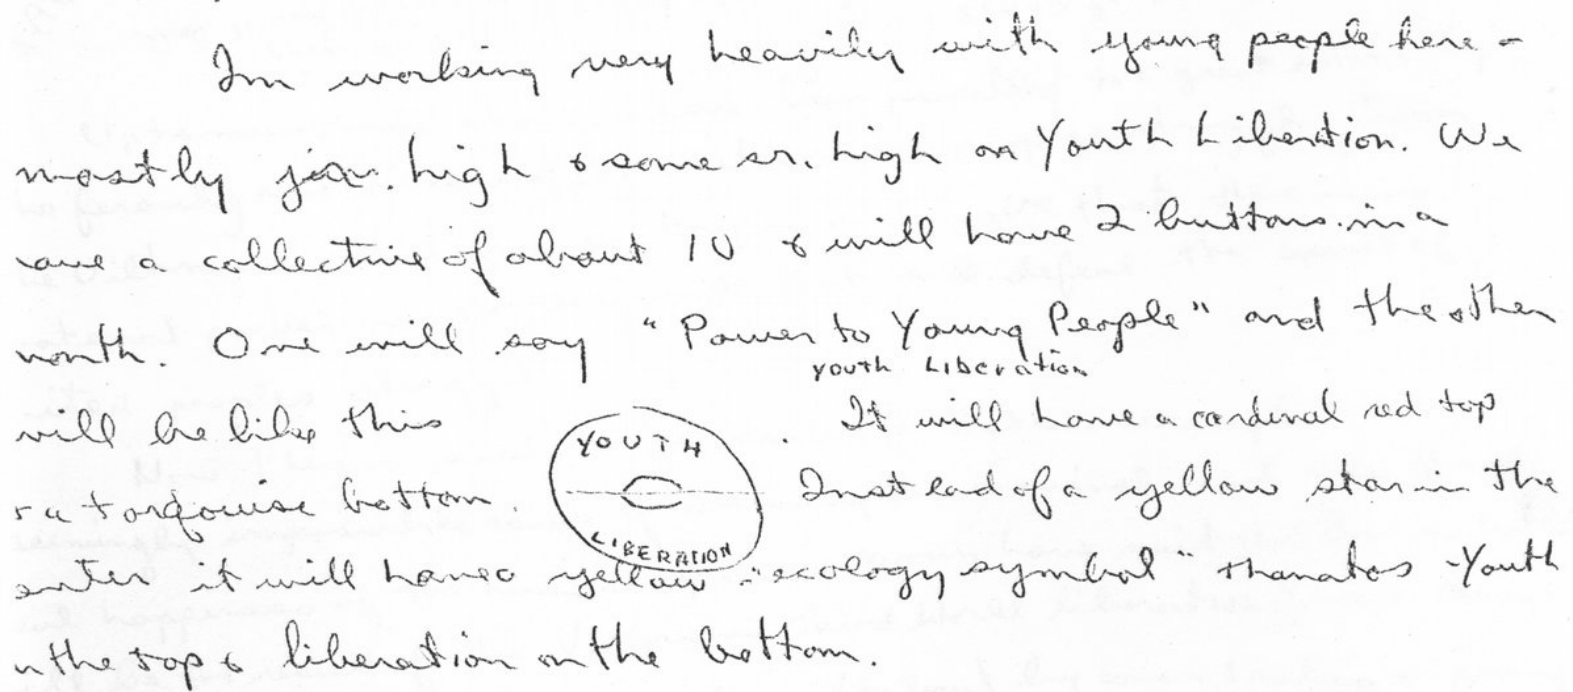 Im working very heavily with young people here -
mostly jr. high & some sr. high on Youth Liberation. We
ave a collective of about 10 & will have 2 buttons in a
month. One will say "Power to Young People" and the other
youth Liberation
will be like this . It will have a cardinal red top
YOUTH
& a torqouise bottom. Instead of a yellow star in the
LIBERATION
enter it will have a yellow "ecology symbol" thanatos - Youth
n the top & liberation on the bottom.